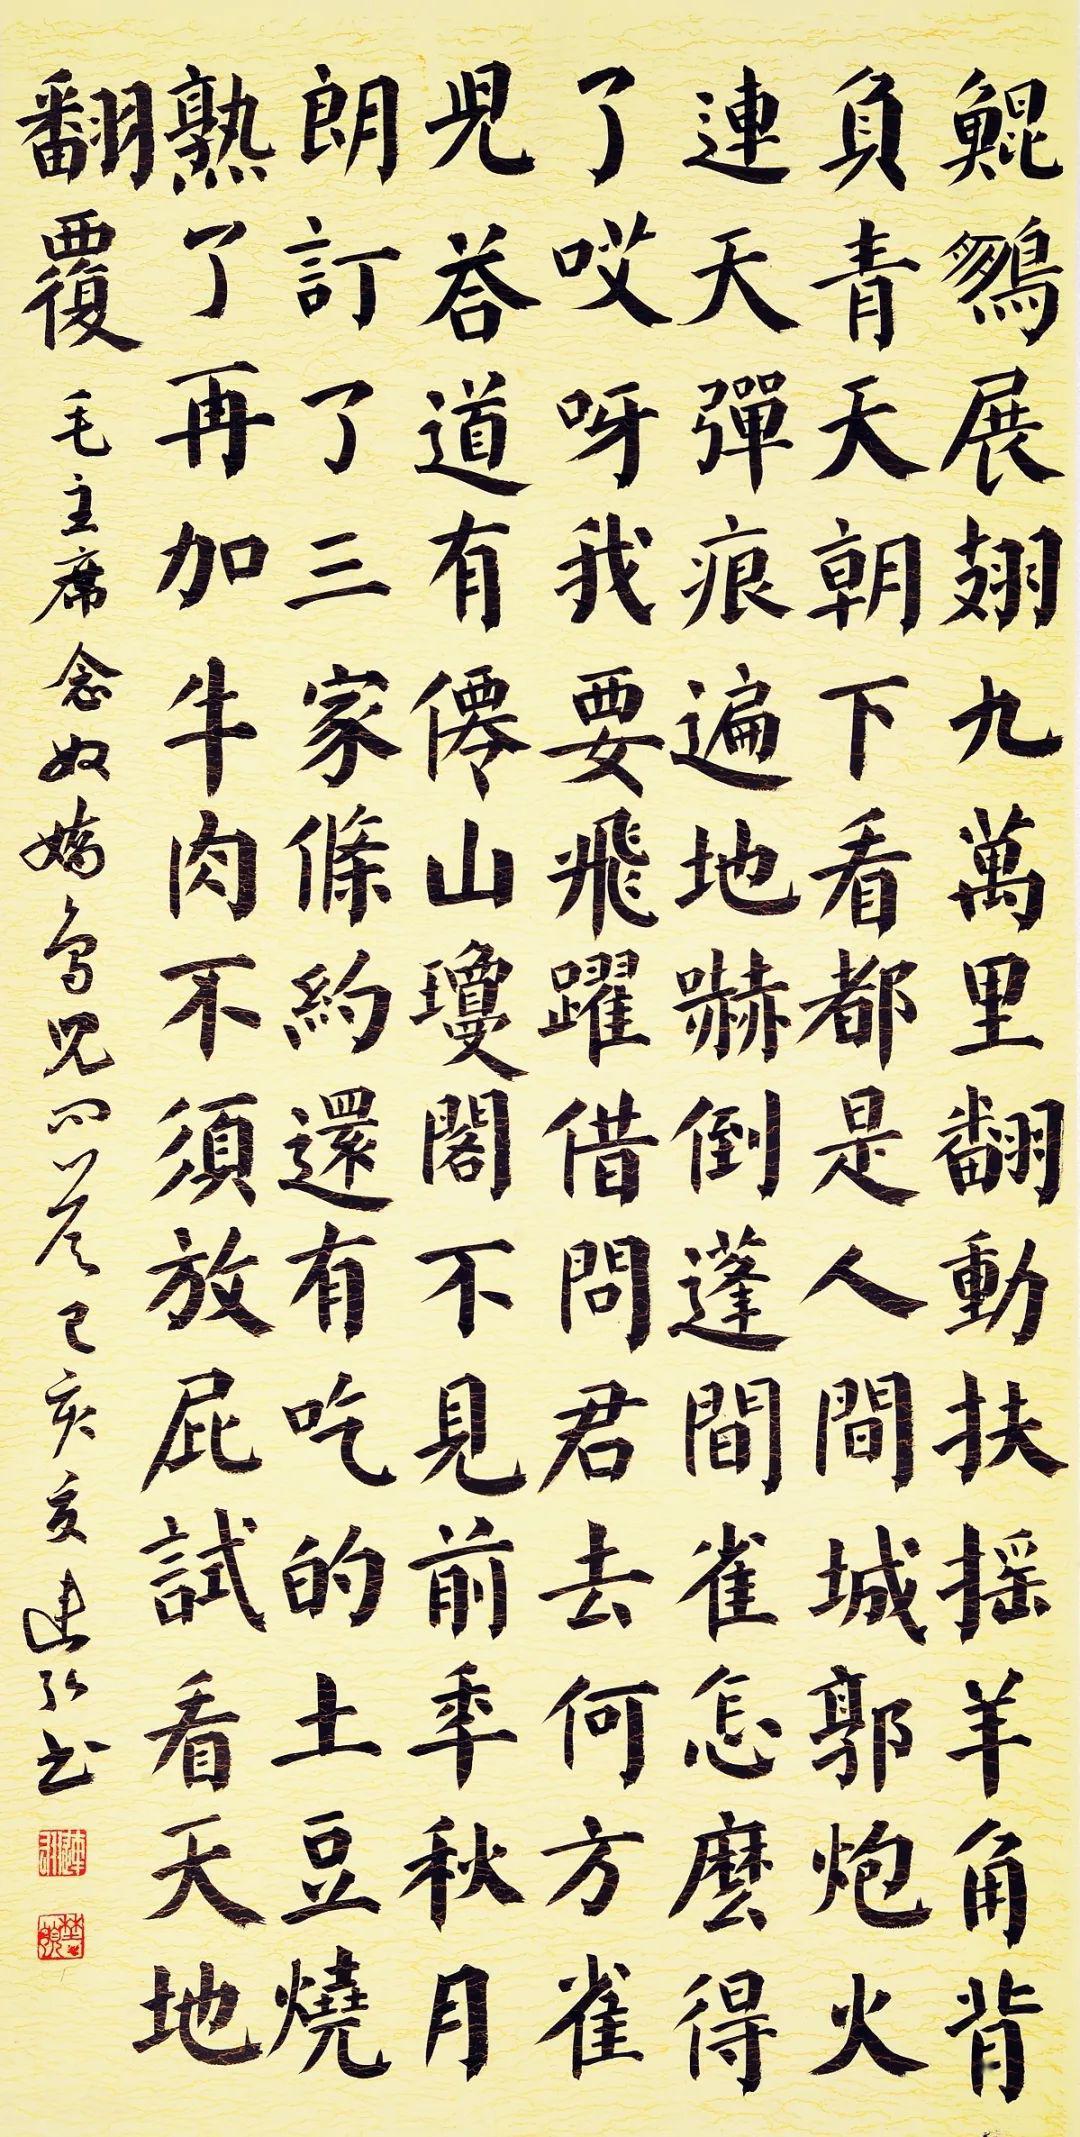 鯤鵬展翅九萬里翻動扶摇羊角背
負青天朝下看都是人間城郭炮火
連天彈痕遍地嚇倒蓬間雀怎麽得
了哎呀我要飛躍借問君去何方雀
兒答道有僊山瓊閣不見前年秋月
朗訂了三家條約還有吃的土豆燒
熟了再加牛肉不須放屁試看天地
翻覆
毛主席念奴嬌鳥兒問答己亥夏建弘书